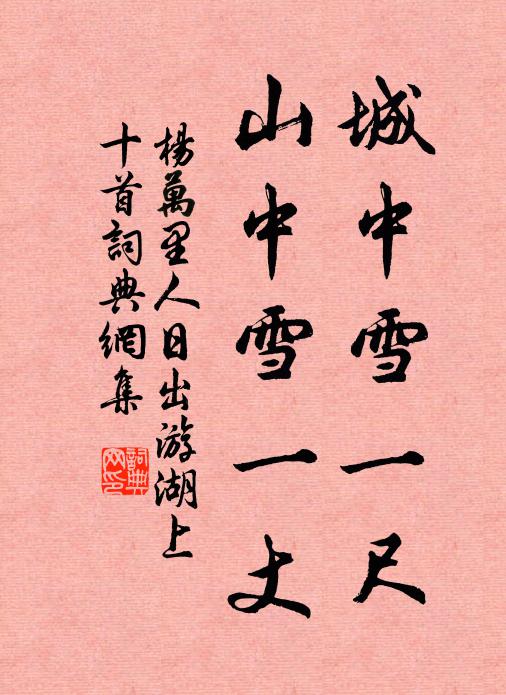 城中雪一尺
山中雪一丈
楊萬里人日出游湖上
十首詞典網集
詞典
网印